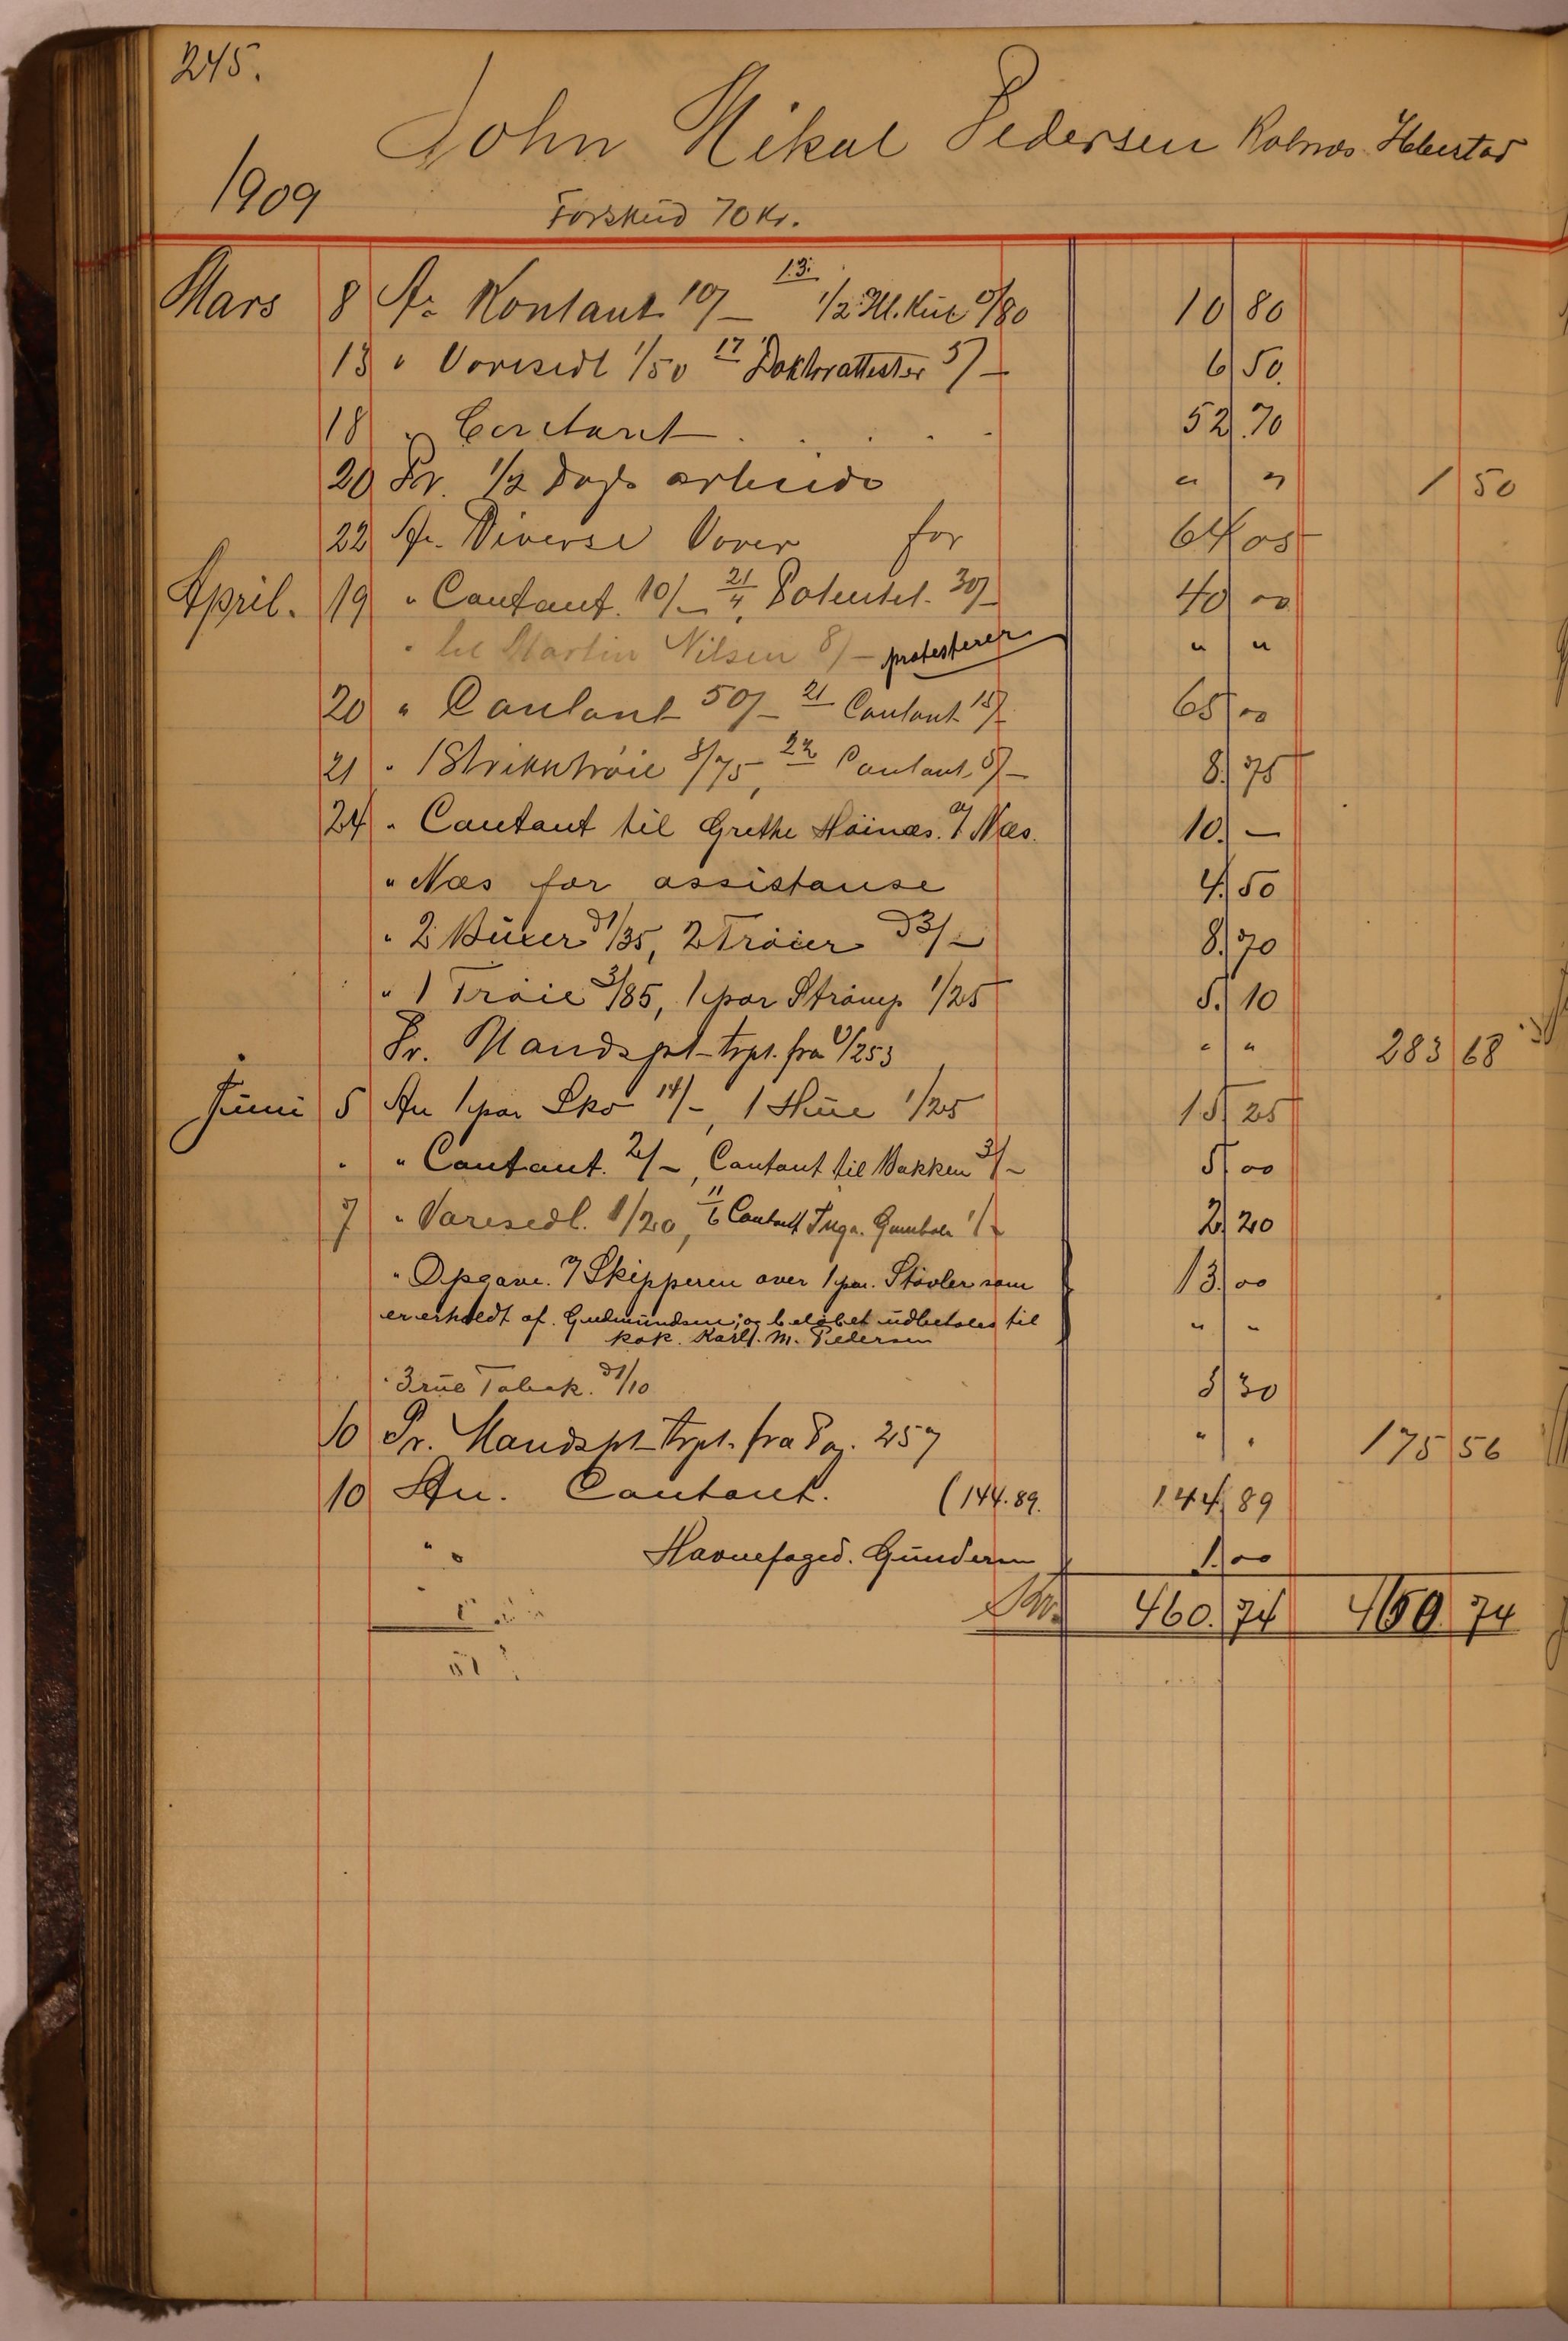 245.
John Nikal Pedersen
1909
Forskud 70 Kr.
13.
Mars 8 An Kontant 10/- 1/2 Hl. Kul 0/80 10 80
13 " Varesedl 1/50 17 Doktorattester 5/- 6 50.
18 " Contant . . . . . 52. 70
20 Pr. 1/2 Dags arbeide " " 1 50
22 An Diverse Varer for 64 05
April. 19 " Contant. 10/- 21/4, 30/- 40 00
" til Martin Nilsen 8/- protesterer " "
20 " Contant 50/- 21 Contant 15/- 65 00
21 " 1 Strikktröie 8/75, 22 Contant 8/- 8. 75
24 " Contant til Grethe Höinæs. af Næs. 10. -
" Næs for assistanse 4. 50
" 2 Buxer à 1/35, 2 Tröier à 3/- 8. 70
" 1 Tröie 3/85, 1 par Strömp 1/25 5. 10
Pr. Mandspt trpt. fra 253 " " 283 68
Juni 5 An 1 par Sko 14/-, 1 Hue 1/25 15 25
" " Contant. 2/-, Contant til Bakken 3/- 5 00
7 " Varesedl. 1/20, 11/6 Contant Inga 1/- 2. 20
" Opgave. af Skipperen over 1 par. Stövler som 13. 00
er erholdt af. Gudmundsen; og belöbet udbetales til " "
kok. Karl. M. Pedersen
" 3 rul Tobak. à 1/10 3 30
10 Pr. Mandspt trpt. fra Pag. 257 " " 175 56
10 An. Contant. (144.89. 144. 89
" " Havnefoged. Gundersen 1. 00
Kr. 460. 74 460 74